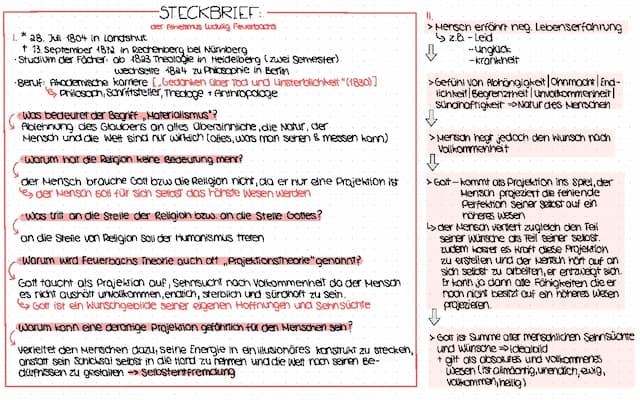 STECKBRIEF:
der Atheismus Ludwig Feuerbachs
I. * 28. Juli 1804 in Landshut
† 13. September 1872 in Rechenberg bei Nürnberg
• Studium der Fächer: ab 1823 Theologie in Heidelberg (zwei Semester)
wechselte 1824 zu Philosophie in Berlin
• Beruf: Akademische Karriere [„Gedanken über Tod und Unsterblichkeit" (1830)]
↳ Philosoph, Schriftsteller, Theologe + Anthropologe
Was bedeutet der Begriff „Materialismus"?
Ablehnung des Glaubens an alles Übersinnliche, die Natur, der
Mensch und die Welt sind nur wirklich (alles, was man sehen & messen kann)
Warum hat die Religion keine Bedeutung mehr?
der Mensch brauche Gott bzw die Religion nicht, da er nur eine Projektion ist
↳ der Mensch soll für sich selbst das höchste Wesen werden
Was tritt an die Stelle der Religion bzw. an die Stelle Gottes?
an die Stelle von Religion soll der Humanismus treten
Warum wird Feuerbachs Theorie auch oft „Projektionstheorie" genannt?
Gott taucht als Projektion auf, Sehnsucht nach Vollkommenheit da der Mensch
es nicht aushält unvollkommen, endlich, sterblich und sündhaft zu sein.
↳ Gott ist ein Wunschgebilde seiner eigenen Hoffnungen und Sehnsüchte
Warum kann eine derartige Projektion gefährlich für den Menschen sein?
verleitet den Menschen dazu, seine Energie in ein illusionäres Konstrukt zu stecken,
anstatt sein Schicksal selbst in die Hand zu nehmen und die Welt nach seinen Be-
dürfnissen zu gestalten → Selbstentfremdung
II.
> Mensch erfährt neg. Lebenserfahrung
↳ z.B. - Leid
- Unglück
- Krankheit
> Gefühl von Abhängigkeit | Ohnmacht | End-
lichkeit | Begrenztheit | Unvollkommenheit |
Sündhaftigkeit ⇒ Natur des Menschen
> Mensch hegt jedoch den Wunsch nach
Vollkommenheit
> Gott - kommt als Projektion ins Spiel, der
Mensch projeziert die fehlende
Perfektion seiner selbst auf ein
höheres Wesen
↳ der Mensch verliert zugleich den Teil
seiner Wünsche als Teil seiner selbst.
zudem kostet es Kraft diese Projektion
zu erstellen und der Mensch hört auf an
sich selbst zu arbeiten, er entzweit sich.
Er kann ja dann alle Fähigkeiten die er
noch nicht besitzt auf ein höheres Wesen
projezieren.
> Gott ist Summe aller menschlichen Sehnsüchte
und Wünsche ⇒ Idealbild
+ gilt als absolutes und vollkommenes
Wesen (ist allmächtig, unendlich, ewig,
vollkommen, heilig)